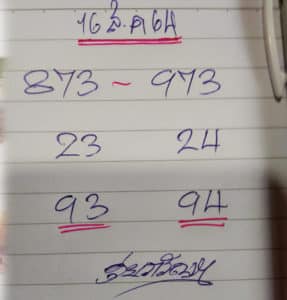 16 มี.ค 64
873 ~ 973
23 24
93 94